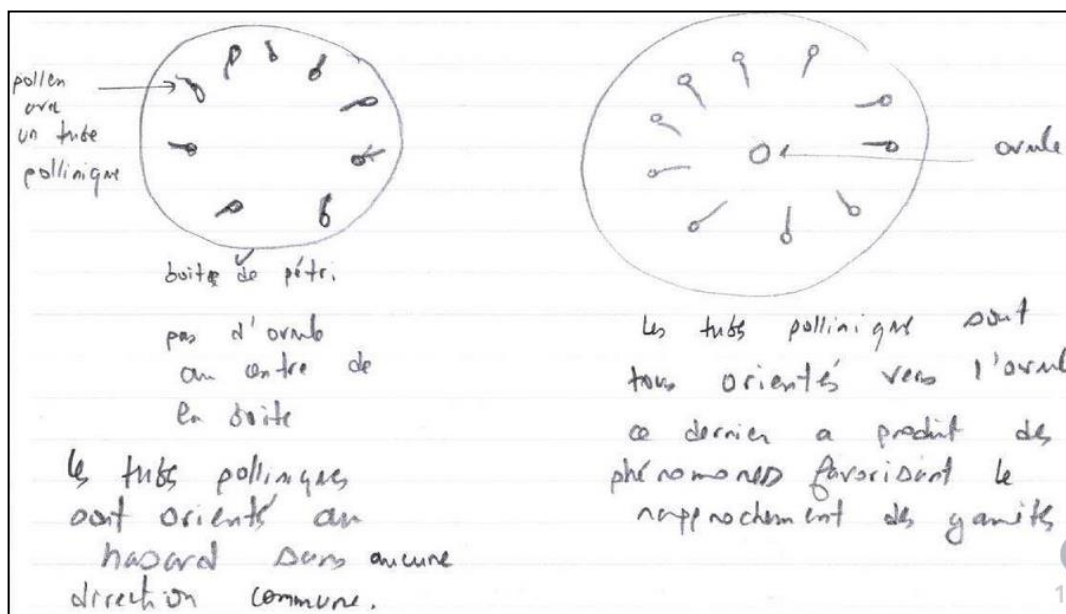 pollen
avec
un tube
pollinique
boite de pétri.
pas d'ovule
au centre de
la boite
les tubes polliniques
sont orientés au
hasard sans aucune
direction commune.
ovule
Les tubes pollinique sont
tous orientés vers l'ovul
ce dernier a produit des
phénomones favorisant le
rapprochement des gamètes
1